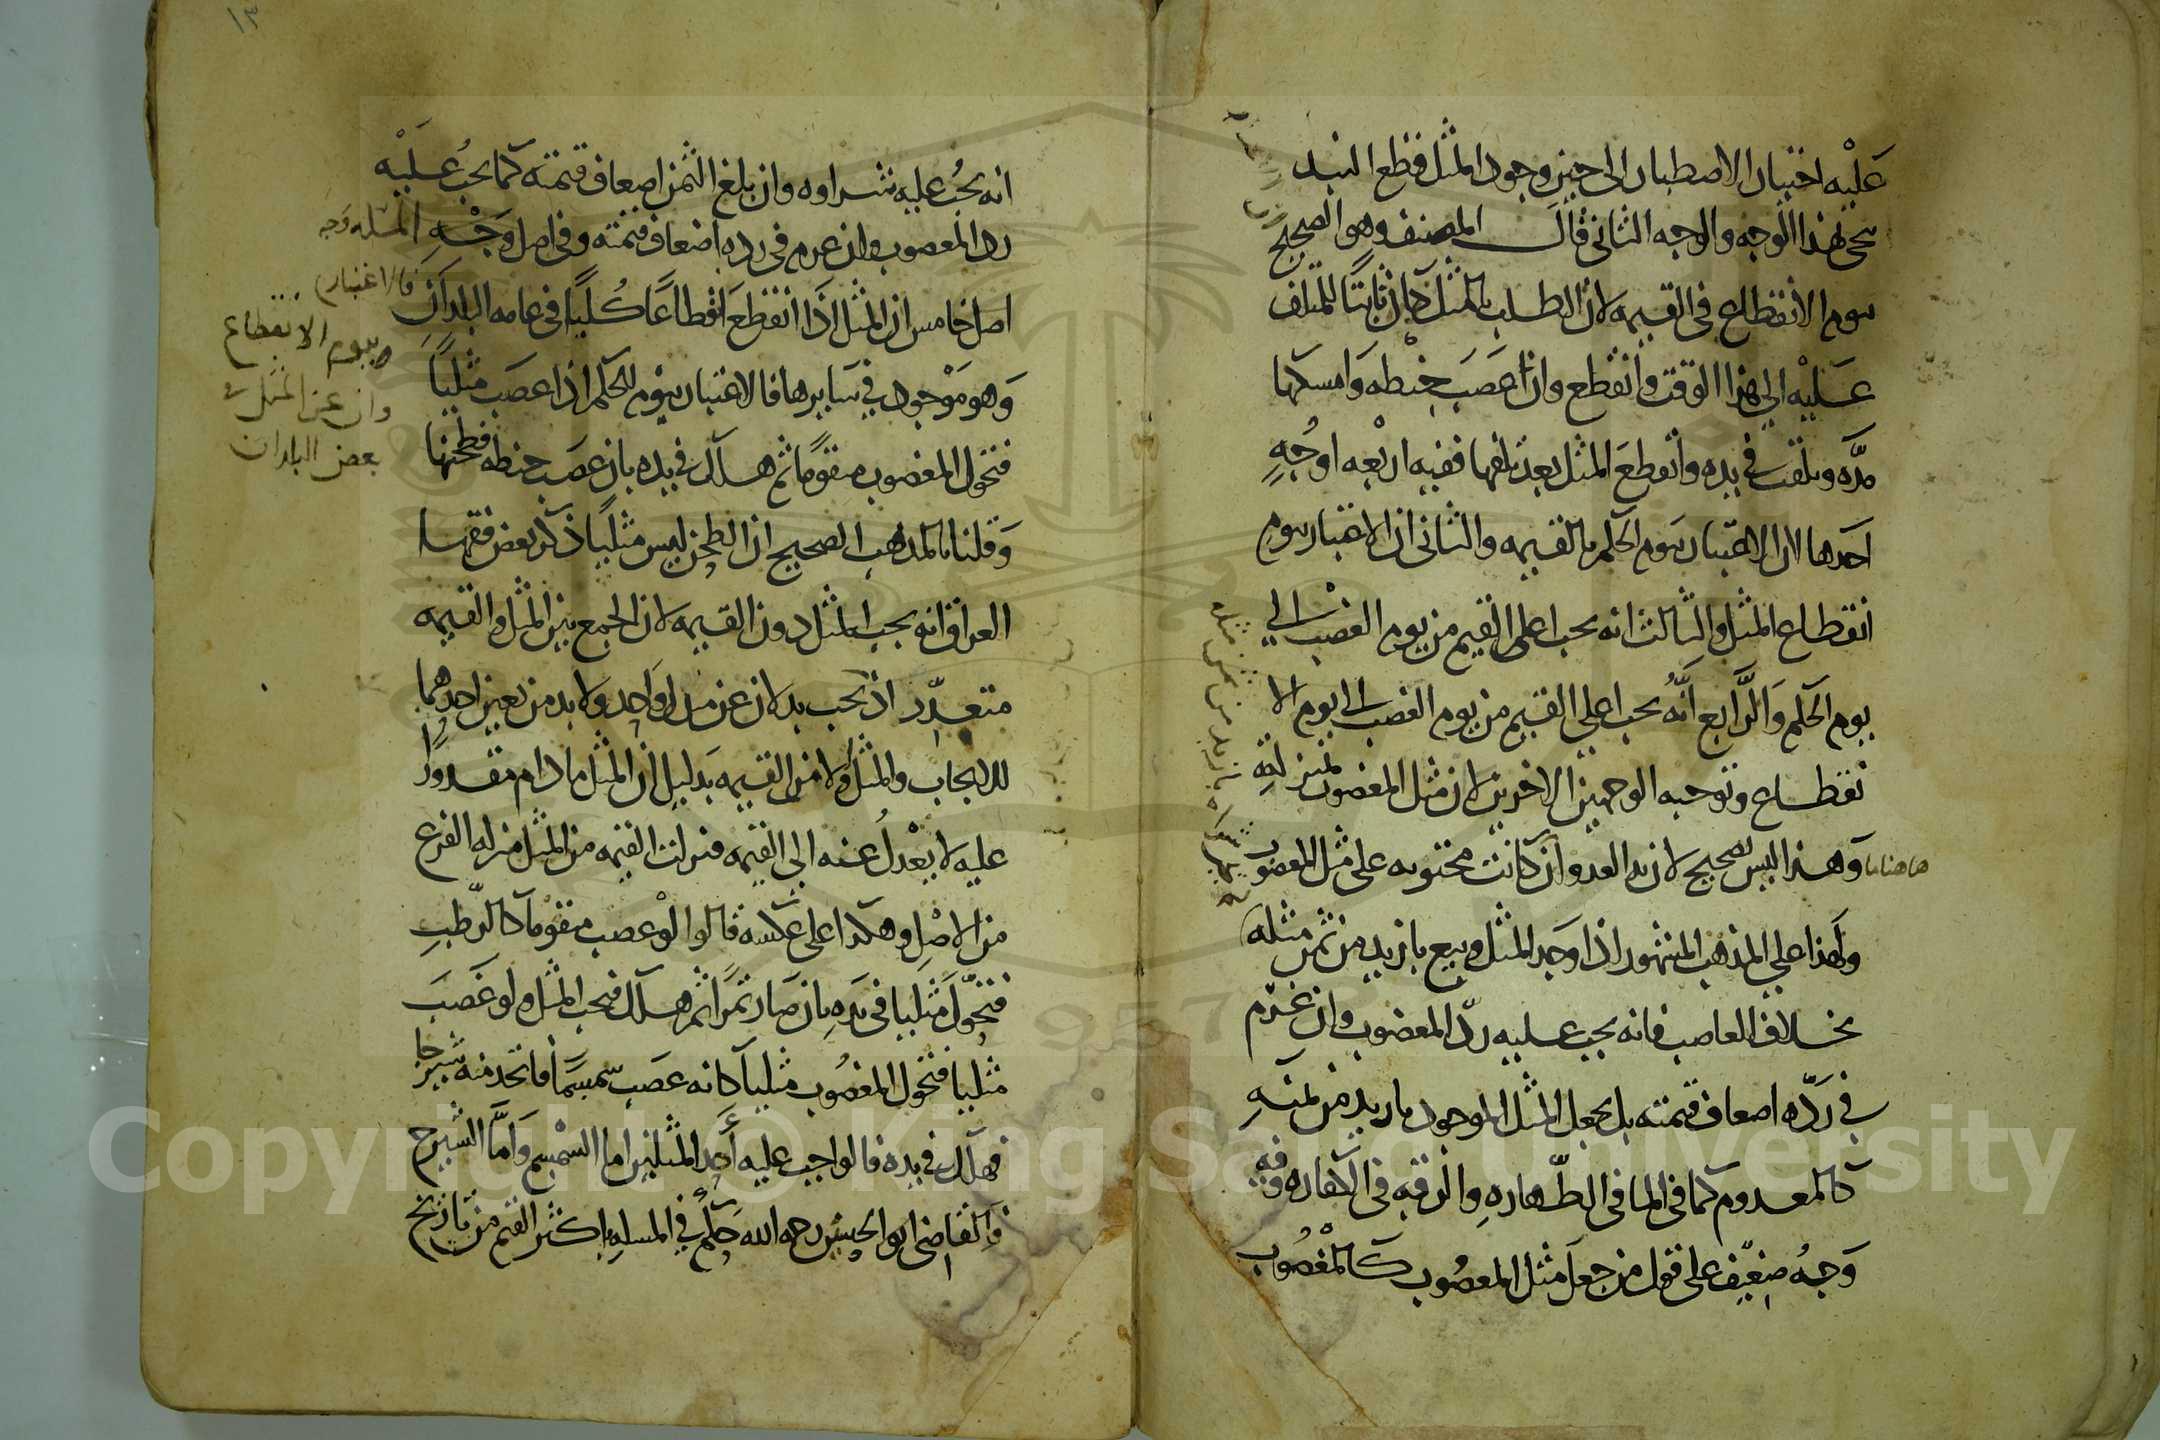 عليه اختيار الاصطبار الى حين وجود المثل فقطع البيد
يحى بهذا الوجه والوجه الثانى قال المصنف وهو الصحيح
يوم الانقطاع فى القيمه لان الطلب بالمثل كان ثابتا للمتلف
عليه الى هذا الوقت وانقطع وان غصب حنطه وامسكها
مدّه وتلفت فى يده وانقطع المثل بعد تلفها ففيه اربعه اوجه
احدها ان الاعتبار يوم الحكم بالقيمه والثانى ان الاعتبار يوم
انقطاع المثل والثالث انه يجب اعلى القيم من يوم الغصب الى
يوم الحكم والرّابع انّه يجب اعلى القيم من يوم الغصب الى يوم الا
نقطاع وتوجيه الوجهين الاخرين لان مثل المغصوب بمنزلته
هاهنا ما
وهذا ليس بصحيح لان يد العدوان كانت محتويه على مثل المغصوب
ولهذا على المذهب المشهور اذا وجد المثل وبيع بازيد من ثمن مثله
بخلاف الغاصب فانه يجب عليه ردّ المغصوب وان غرم
فى ردّه اضعاف قيمته بل يجعل المثل الموجود بازيد من ثمنه
كالمعدوم كما فى الما فى الطّهاره والرقبه فى الكفاره وفيه
وجه ضعيف على قول من جعل مثل المغصوب كالمغصوب
١٣
انه يجب عليه شراوه وان بلغ الثمن اضعاف قيمته كما يجب عليه
رد المغصوب وان غرم فى رده اضعاف قيمته وفى اصل وجه المسله وجه
اصل خامس ان المثل اذا انقطع انقطاعا كليا فى عامه البلدان
فالاعتبار
بيوم الانقطاع
وان عز المثل فى
بعض البلدان
وهو موجود فى سايرها فالاعتبار بيوم الحكم اذا غصب مثليا
فتحول المغصوب متقوما ثم هلك فى يده بان غصب حنطه فطحنها
وقلنا بالمذهب الصحيح ان الطحن ليس مثليا ذكر بعض فقها
العراق انه يجب المثل دون القيمه لان الجمع بين المثل والقيمه
متعذر اذ يجب بدلان عن مبدل واحد ولا بد من تعين احدهما
للايجاب والمثل اولا من القيمه بدليل ان المثل ما دام مقدورًا
عليه لا يعدل عنه الى القيمه فنزلت القيمه من المثل منزله الفرع
من الاصل وهكذا على عكسه قالوا لو غصب متقوما كالرطب
فتحوّل مثليا فى يده بان صار تمرا ثم هلك فيجب المثل ولو غصب
مثليا فتحول المغصوب مثليا كانه غصب سمسما فاتخذ منه شيرجا
فهلك فى يده فالواجب عليه أحد المثلين اما السمسم وامّا الشيرج
والقاضى ابو الحسن رحمه الله حكم فى المسله باكثر القيم من تاريخ